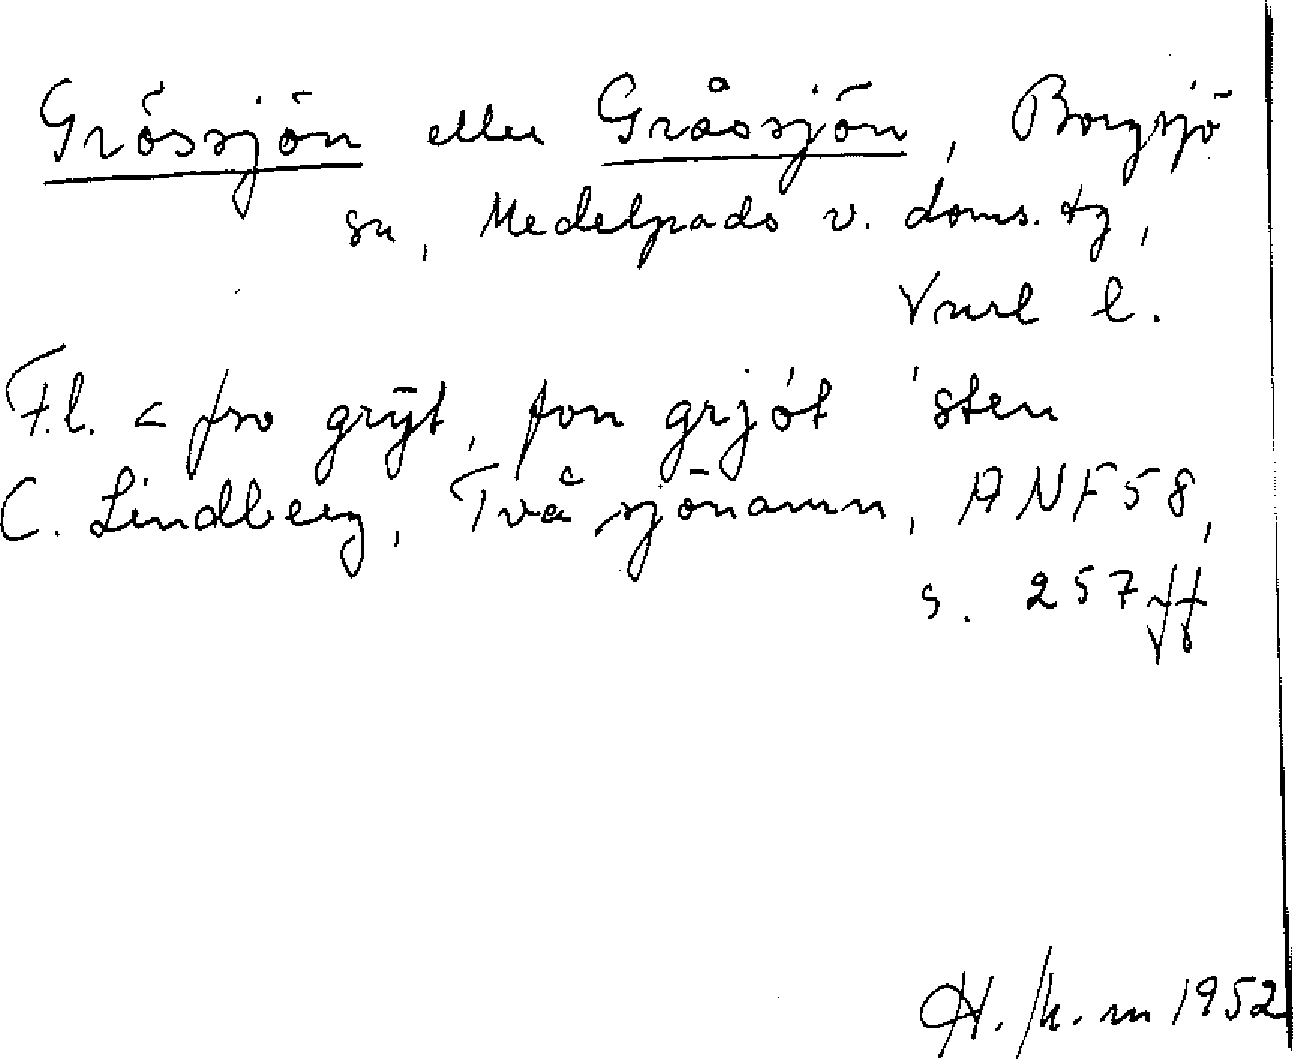 Grössjön eller Gråssjön, Borgsjö
sn, Medelpads v. doms. tg,
Vnrl l.
F.l. < fro grȳt, fon grjót 'sten
C. Lindberg, Två sjönamn, ANF 58,
s. 257 ff
1952